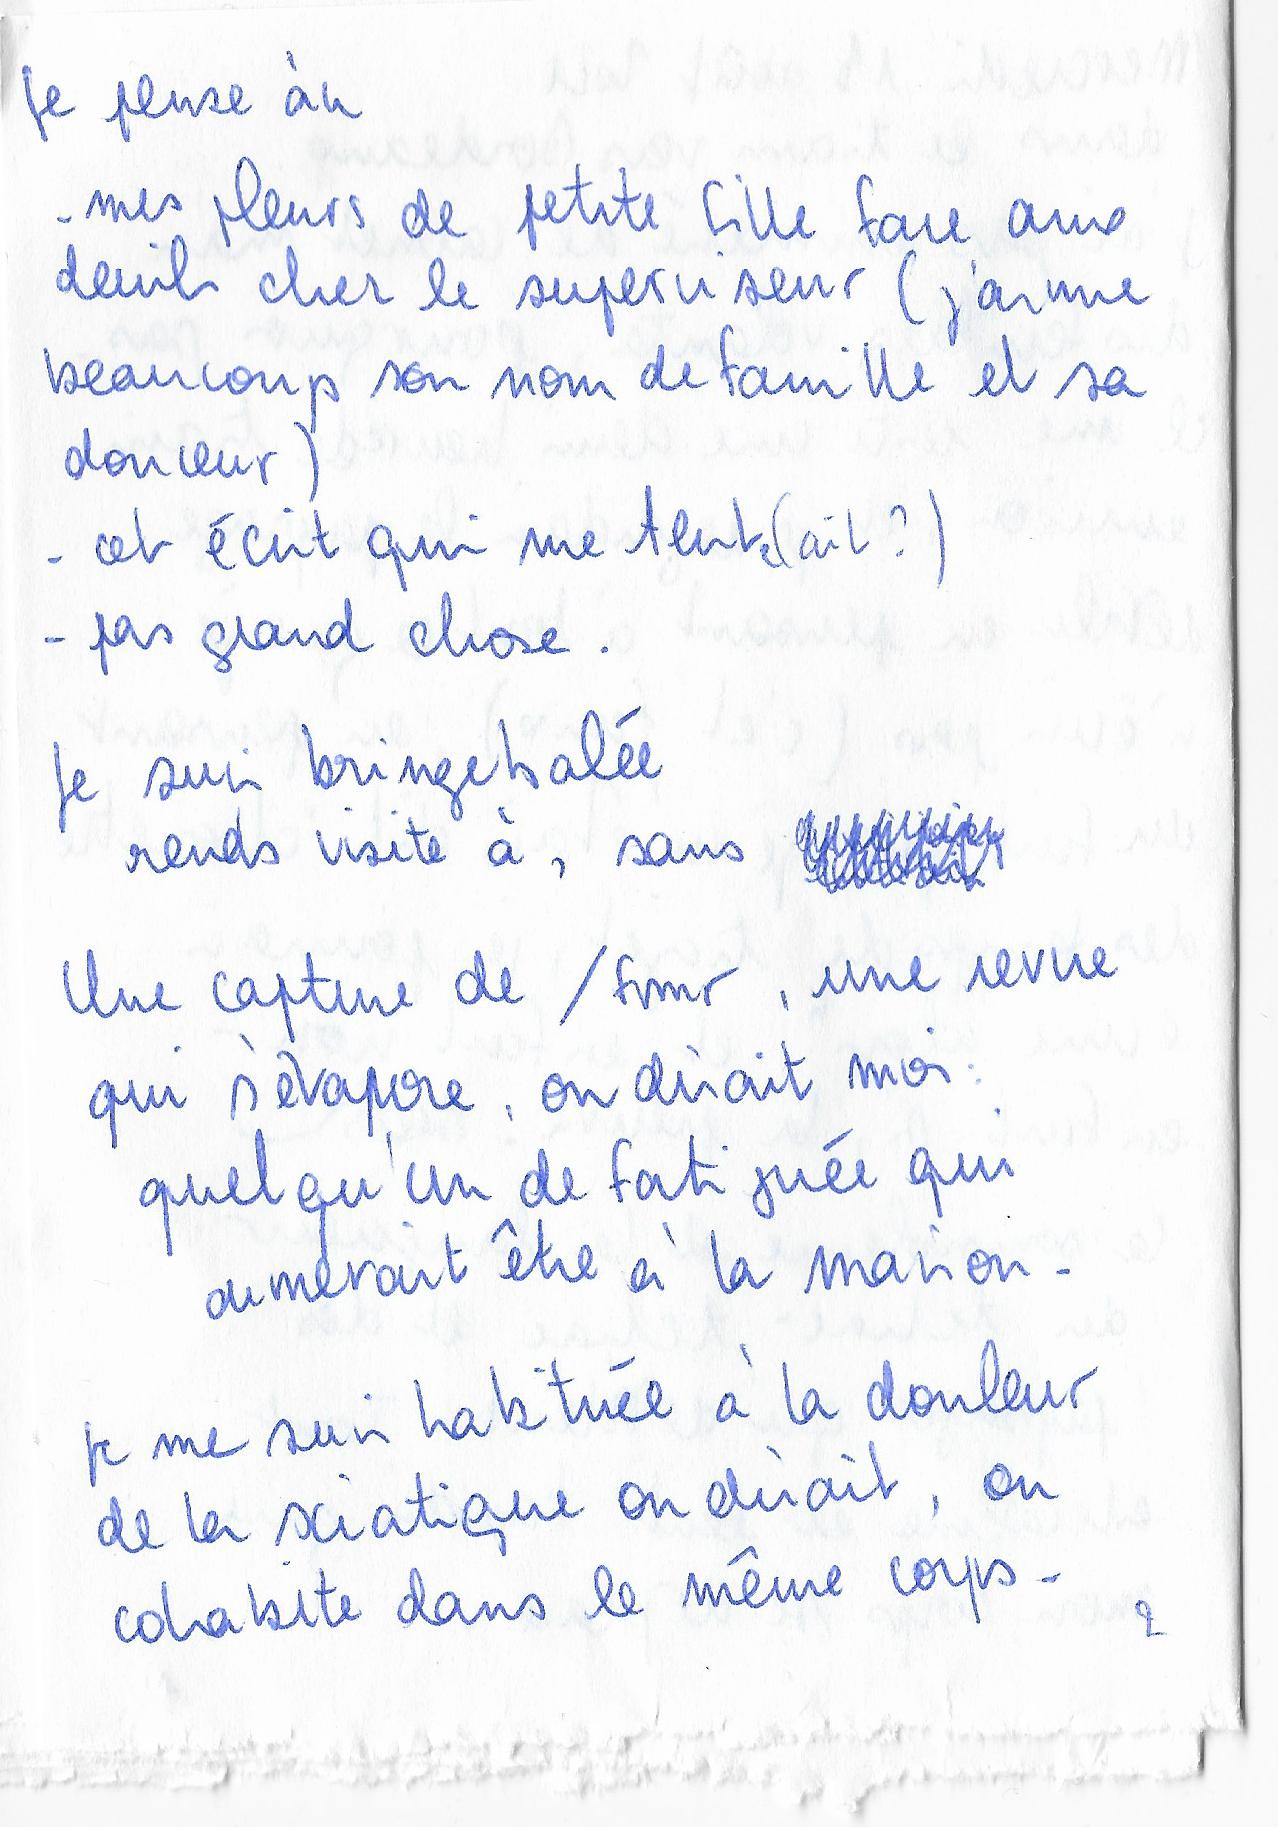 je pense àu
- mes pleurs de petite fille face aux
deuils chez le superviseur (j'aime
beaucoup son nom de famille et sa
douceur)
- cet écrit qui me tente(ait ?)
- pas grand chose.
je suis bringebalée
rends visite à, sans
Une capture de / sur, une revue
qui s'évapore, on dirait moi :
quelqu'un de fatiguée qui
aimerait être à la maison -
je me suis habituée à la douleur
de la sciatique on dirait, on
cohabite dans le même corps -
2